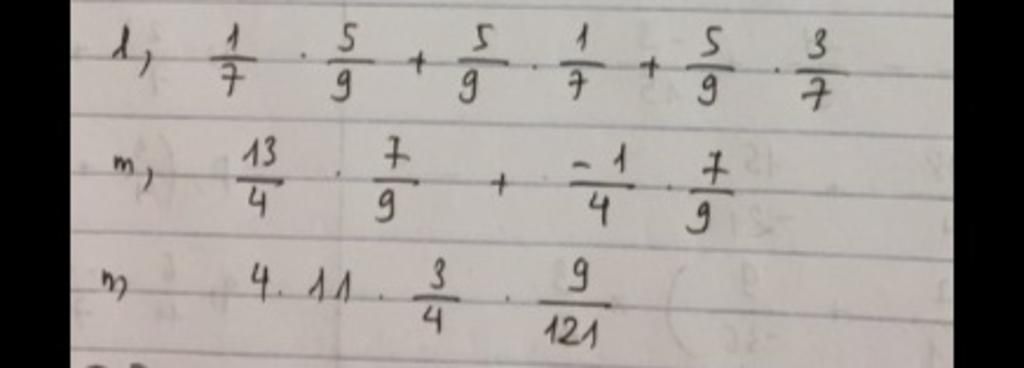 l, 1/7 · 5/9 + 5/9 · 1/7 + 5/9 · 3/7
m, 13/4 · 7/9 + -1/4 · 7/9
n, 4 · 11 · 3/4 · 9/121